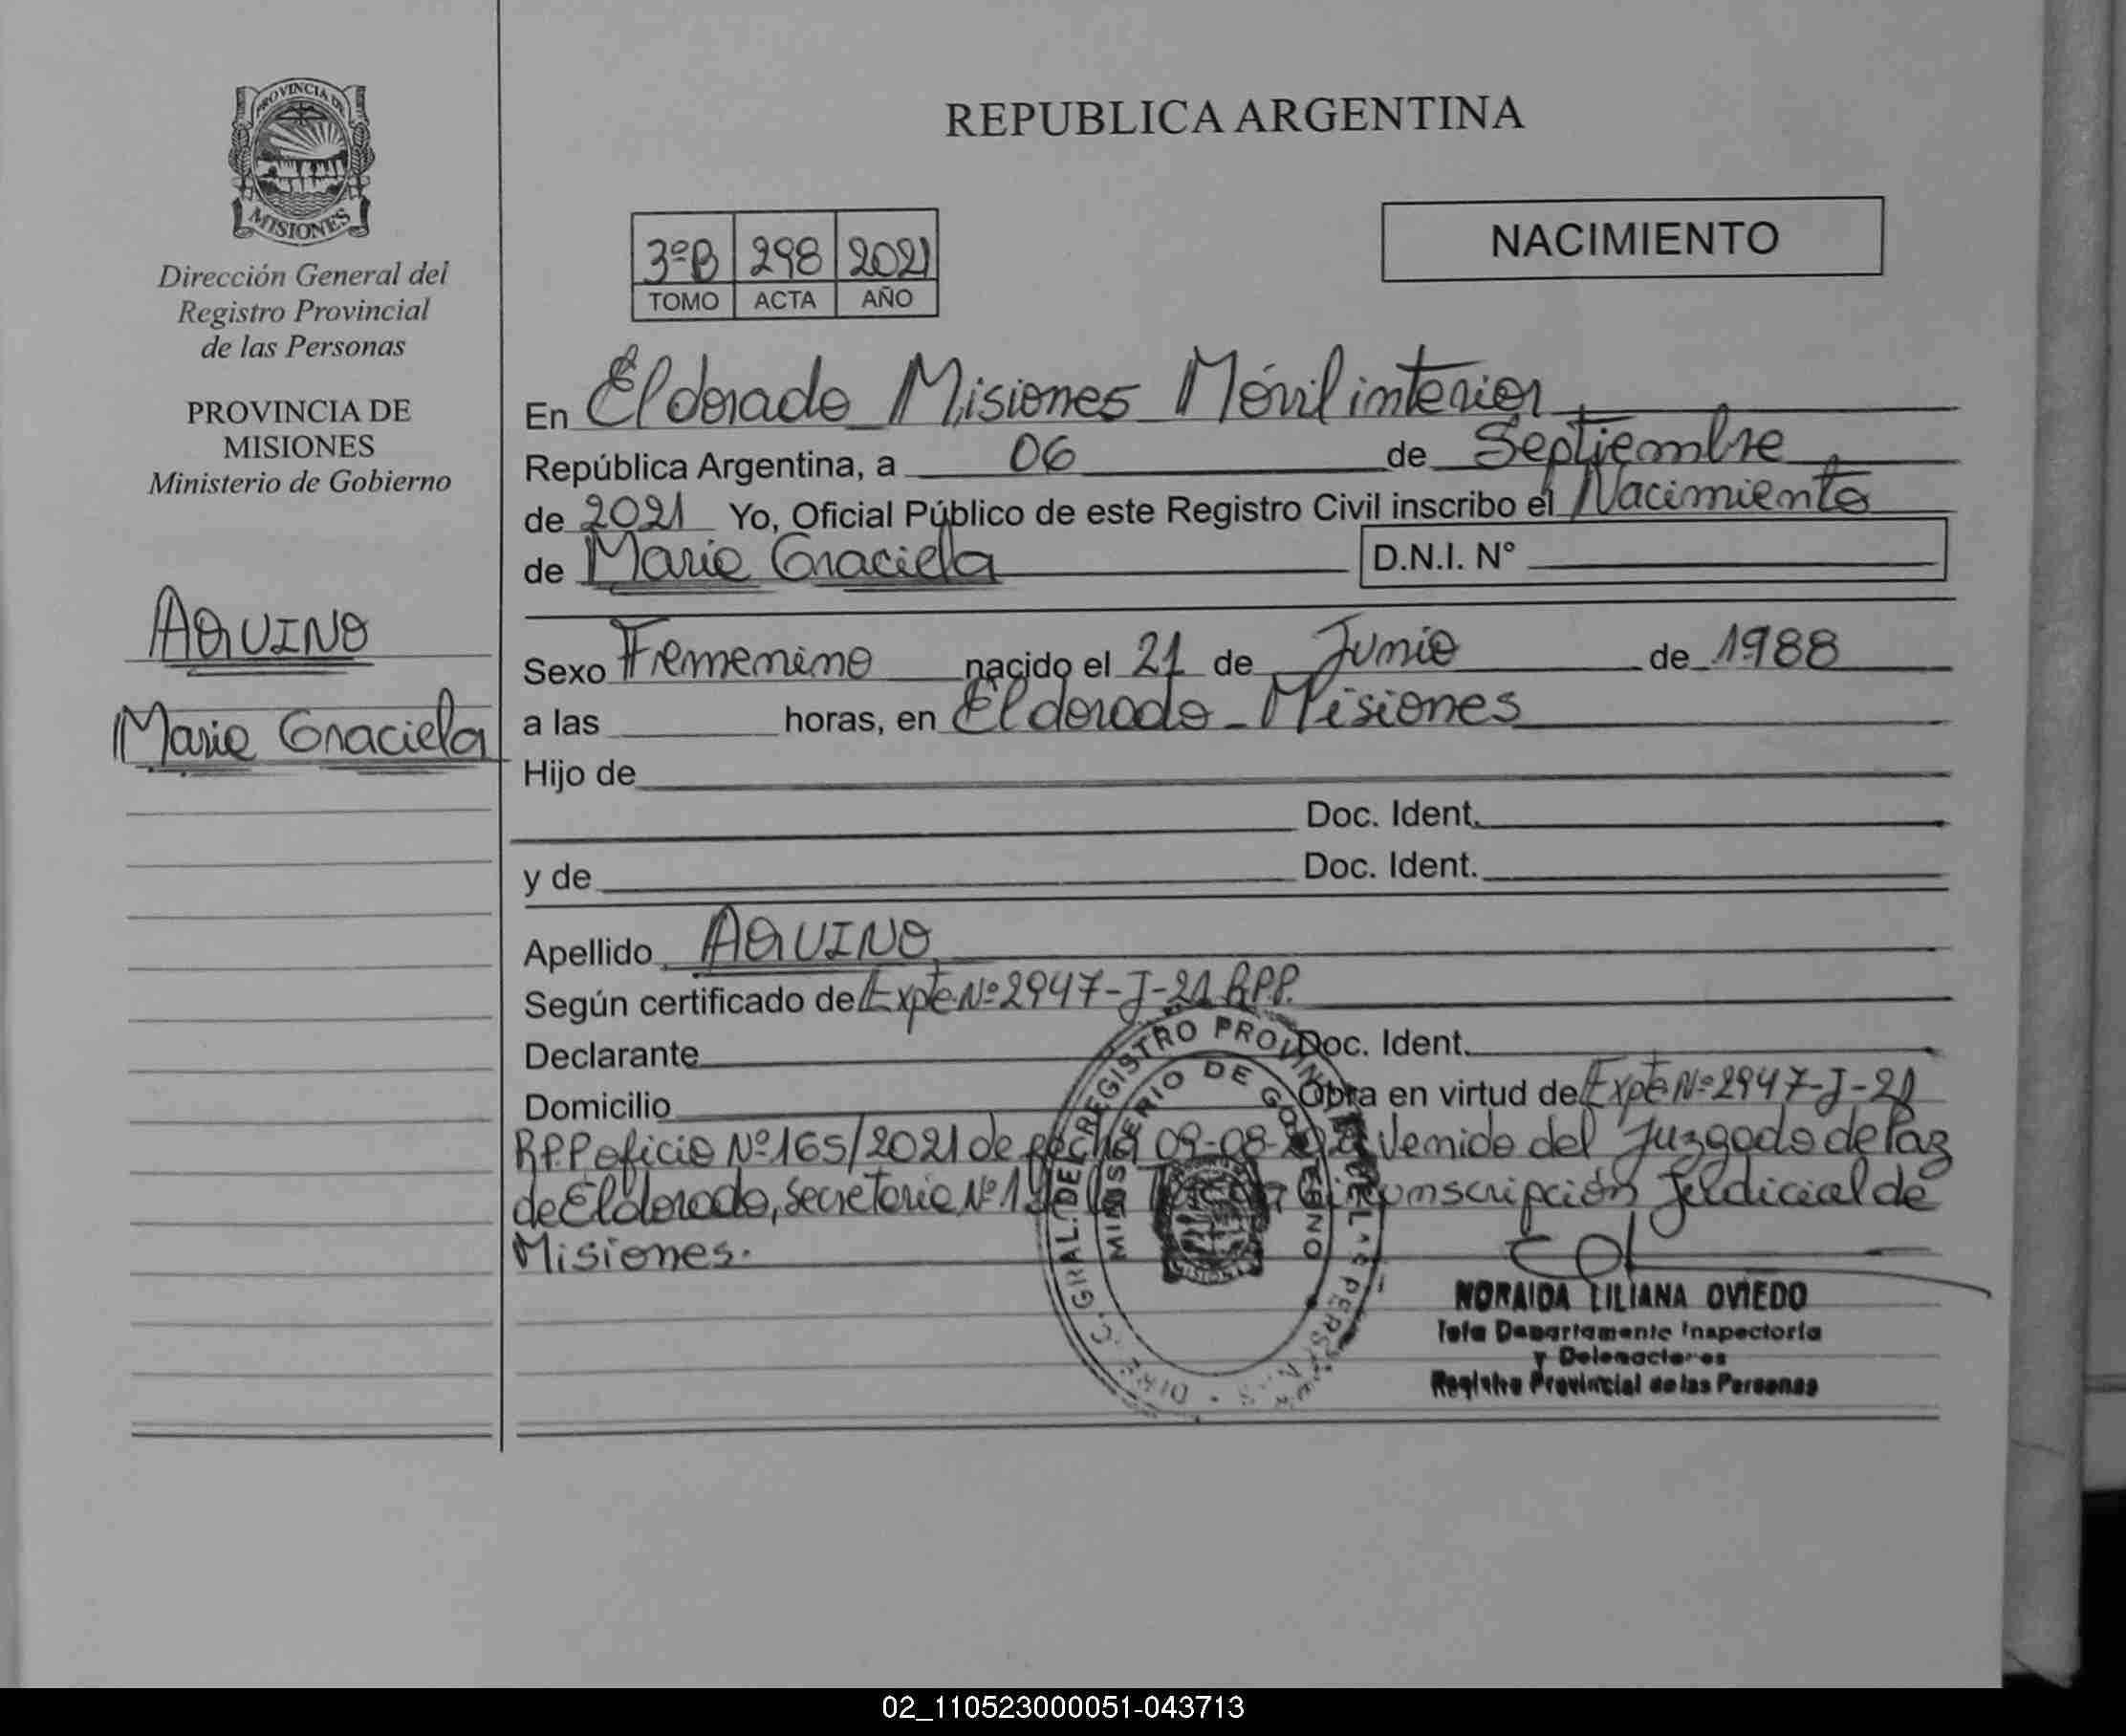 PROVINCIA DE
MISIONES
Dirección General del
Registro Provincial
de las Personas
PROVINCIA DE
MISIONES
Ministerio de Gobierno
AQUINO
Maria Graciela
REPUBLICA ARGENTINA
NACIMIENTO
3ºB 298 2021
TOMO ACTA AÑO
En Eldorado Misiones Móvil interior
República Argentina, a 06 de Septiembre
de 2021 Yo, Oficial Público de este Registro Civil inscribo el Nacimiento
de Maria Graciela D.N.I. N°
Sexo Femenino nacido el 21 de Junio de 1988
a las horas, en Eldorado - Misiones
Hijo de
Doc. Ident.
y de Doc. Ident.
Apellido AQUINO
Según certificado de Expte Nº 2947-J-21 R.P.P.
Declarante Doc. Ident.
Domicilio Obra en virtud de Expte Nº 2947-J-21
R.P.P oficio Nº 165/2021 de fecha 09-08-2021 venido del Juzgado de Paz
de Eldorado, Secretaria Nº 1 de la Circunscripción Judicial de
Misiones.
DIREC. GRAL. DEL REGISTRO PROVINCIAL
MINISTERIO DE GOBIERNO
NORAIDA LILIANA OVIEDO
Jefa Departamento Inspectoría
y Delegaciones
Registro Provincial de las Personas
02_110523000051-043713